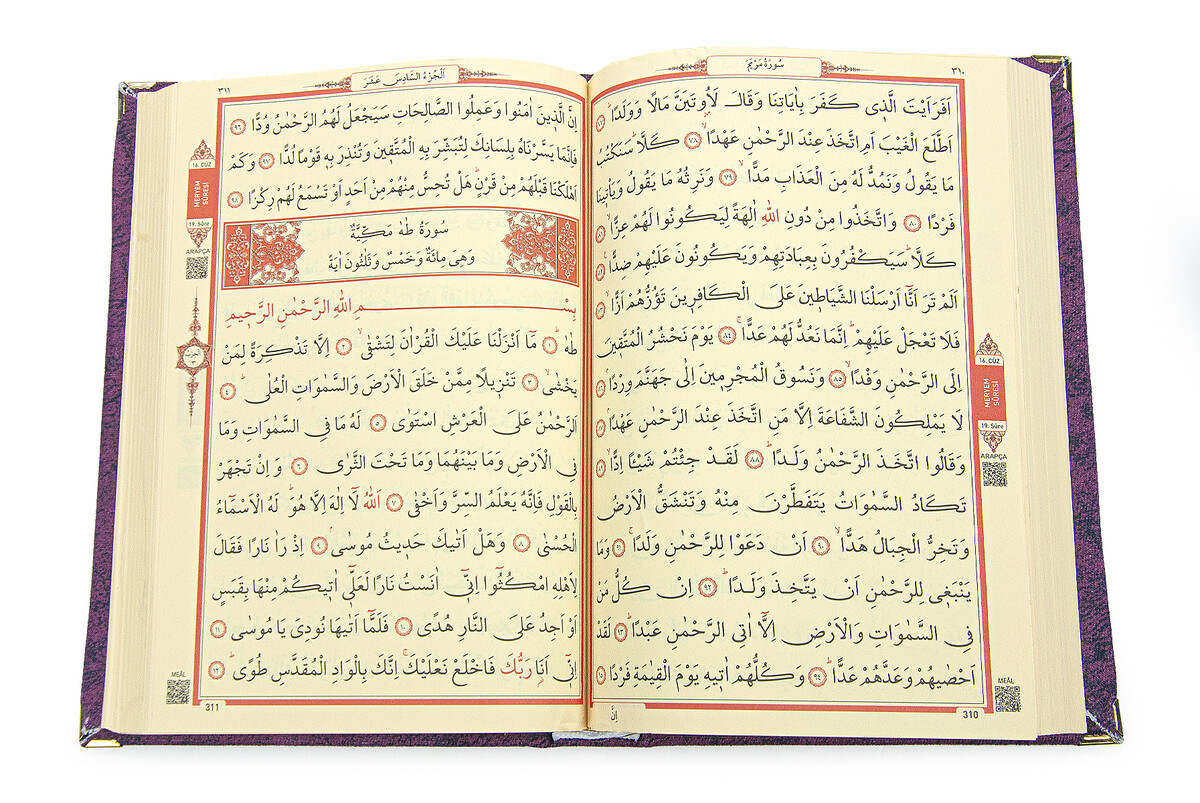 ٣١٠
سُورَةُ مَرْيَمَ
اَفَرَاَيْتَ الَّذٖى كَفَرَ بِاٰيَاتِنَا وَقَالَ لَاُوتَيَنَّ مَالًا وَوَلَدًاۜ ﴿٧٧﴾
اَطَّلَعَ الْغَيْبَ اَمِ اتَّخَذَ عِنْدَ الرَّحْمٰنِ عَهْدًاۙ ﴿٧٨﴾ كَلَّاۜ سَنَكْتُبُ
مَا يَقُولُ وَنَمُدُّ لَهُ مِنَ الْعَذَابِ مَدًّاۙ ﴿٧٩﴾ وَنَرِثُهُ مَا يَقُولُ وَيَأْتٖينَا
فَرْدًا ﴿٨٠﴾ وَاتَّخَذُوا مِنْ دُونِ اللّٰهِ اٰلِهَةً لِيَكُونُوا لَهُمْ عِزًّاۙ ﴿٨١﴾
كَلَّاۜ سَيَكْفُرُونَ بِعِبَادَتِهِمْ وَيَكُونُونَ عَلَيْهِمْ ضِدًّا۟ ﴿٨٢﴾
اَلَمْ تَرَ اَنَّٓا اَرْسَلْنَا الشَّيَاطٖينَ عَلَى الْكَافِرٖينَ تَؤُزُّهُمْ اَزًّاۙ ﴿٨٣﴾
فَلَا تَعْجَلْ عَلَيْهِمْۜ اِنَّمَا نَعُدُّ لَهُمْ عَدًّاۚ ﴿٨٤﴾ يَوْمَ نَحْشُرُ الْمُتَّقٖينَ
اِلَى الرَّحْمٰنِ وَفْدًاۙ ﴿٨٥﴾ وَنَسُوقُ الْمُجْرِمٖينَ اِلٰى جَهَنَّمَ وِرْدًاۢ ﴿٨٦﴾
لَا يَمْلِكُونَ الشَّفَاعَةَ اِلَّا مَنِ اتَّخَذَ عِنْدَ الرَّحْمٰنِ عَهْدًاۢ ﴿٨٧﴾
وَقَالُوا اتَّخَذَ الرَّحْمٰنُ وَلَدًاۜ ﴿٨٨﴾ لَقَدْ جِئْتُمْ شَيْـًٔا اِدًّاۙ ﴿٨٩﴾
تَكَادُ السَّمٰوَاتُ يَتَفَطَّرْنَ مِنْهُ وَتَنْشَقُّ الْاَرْضُ
وَتَخِرُّ الْجِبَالُ هَدًّاۙ ﴿٩٠﴾ اَنْ دَعَوْا لِلرَّحْمٰنِ وَلَدًاۚ ﴿٩١﴾ وَمَا
يَنْبَغٖى لِلرَّحْمٰنِ اَنْ يَتَّخِذَ وَلَدًاۜ ﴿٩٢﴾ اِنْ كُلُّ مَنْ
فِى السَّمٰوَاتِ وَالْاَرْضِ اِلَّٓا اٰتِى الرَّحْمٰنِ عَبْدًاۜ ﴿٩٣﴾ لَقَدْ
اَحْصٰيهُمْ وَعَدَّهُمْ عَدًّاۜ ﴿٩٤﴾ وَكُلُّهُمْ اٰتٖيهِ يَوْمَ الْقِيٰمَةِ فَرْدًا ﴿٩٥﴾
اِنَّ
310
16. CÜZ
MERYEM SÛRESİ
19. Sûre
ARAPÇA
MEÂL
اَلْجُزْءُ السَّادِسَ عَشَرَ
٣١١
اِنَّ الَّذٖينَ اٰمَنُوا وَعَمِلُوا الصَّالِحَاتِ سَيَجْعَلُ لَهُمُ الرَّحْمٰنُ وُدًّا ﴿٩٦﴾
فَاِنَّمَا يَسَّرْنَاهُ بِلِسَانِكَ لِتُبَشِّرَ بِهِ الْمُتَّقٖينَ وَتُنْذِرَ بِهٖ قَوْمًا لُدًّا ﴿٩٧﴾ وَكَمْ
اَهْلَكْنَا قَبْلَهُمْ مِنْ قَرْنٍۜ هَلْ تُحِسُّ مِنْهُمْ مِنْ اَحَدٍ اَوْ تَسْمَعُ لَهُمْ رِكْزًا ﴿٩٨﴾
سُورَةُ طٰهٰ مَكِّيَّةٌ
وَهِىَ مِائَةٌ وَخَمْسٌ وَثَلٰثُونَ اٰيَةً
بِسْمِ اللّٰهِ الرَّحْمٰنِ الرَّحٖيمِ
طٰهٰۜ ﴿١﴾ مَٓا اَنْزَلْنَا عَلَيْكَ الْقُرْاٰنَ لِتَشْقٰىۙ ﴿٢﴾ اِلَّا تَذْكِرَةً لِمَنْ
يَخْشٰىۙ ﴿٣﴾ تَنْزٖيلًا مِمَّنْ خَلَقَ الْاَرْضَ وَالسَّمٰوَاتِ الْعُلٰىۜ ﴿٤﴾
اَلرَّحْمٰنُ عَلَى الْعَرْشِ اسْتَوٰى ﴿٥﴾ لَهُ مَا فِى السَّمٰوَاتِ وَمَا
فِى الْاَرْضِ وَمَا بَيْنَهُمَا وَمَا تَحْتَ الثَّرٰى ﴿٦﴾ وَاِنْ تَجْهَرْ
بِالْقَوْلِ فَاِنَّهُ يَعْلَمُ السِّرَّ وَاَخْفٰى ﴿٧﴾ اَللّٰهُ لَٓا اِلٰهَ اِلَّا هُوَۜ لَهُ الْاَسْمَٓاءُ
الْحُسْنٰى ﴿٨﴾ وَهَلْ اَتٰيكَ حَدٖيثُ مُوسٰىۢ ﴿٩﴾ اِذْ رَاٰ نَارًا فَقَالَ
لِاَهْلِهِ امْكُثُٓوا اِنّٖٓى اٰنَسْتُ نَارًا لَعَلّٖٓى اٰتٖيكُمْ مِنْهَا بِقَبَسٍ
اَوْ اَجِدُ عَلَى النَّارِ هُدًى ﴿١٠﴾ فَلَمَّٓا اَتٰيهَا نُودِىَ يَا مُوسٰى ﴿١١﴾
اِنّٖٓى اَنَا۬ رَبُّكَ فَاخْلَعْ نَعْلَيْكَۚ اِنَّكَ بِالْوَادِ الْمُقَدَّسِ طُوًىۜ ﴿١٢﴾
311
16. CÜZ
MERYEM SÛRESİ
19. Sûre
ARAPÇA
MEÂL